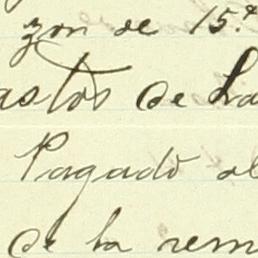 zon de 15.
astos de La
Pagado al
de la rem